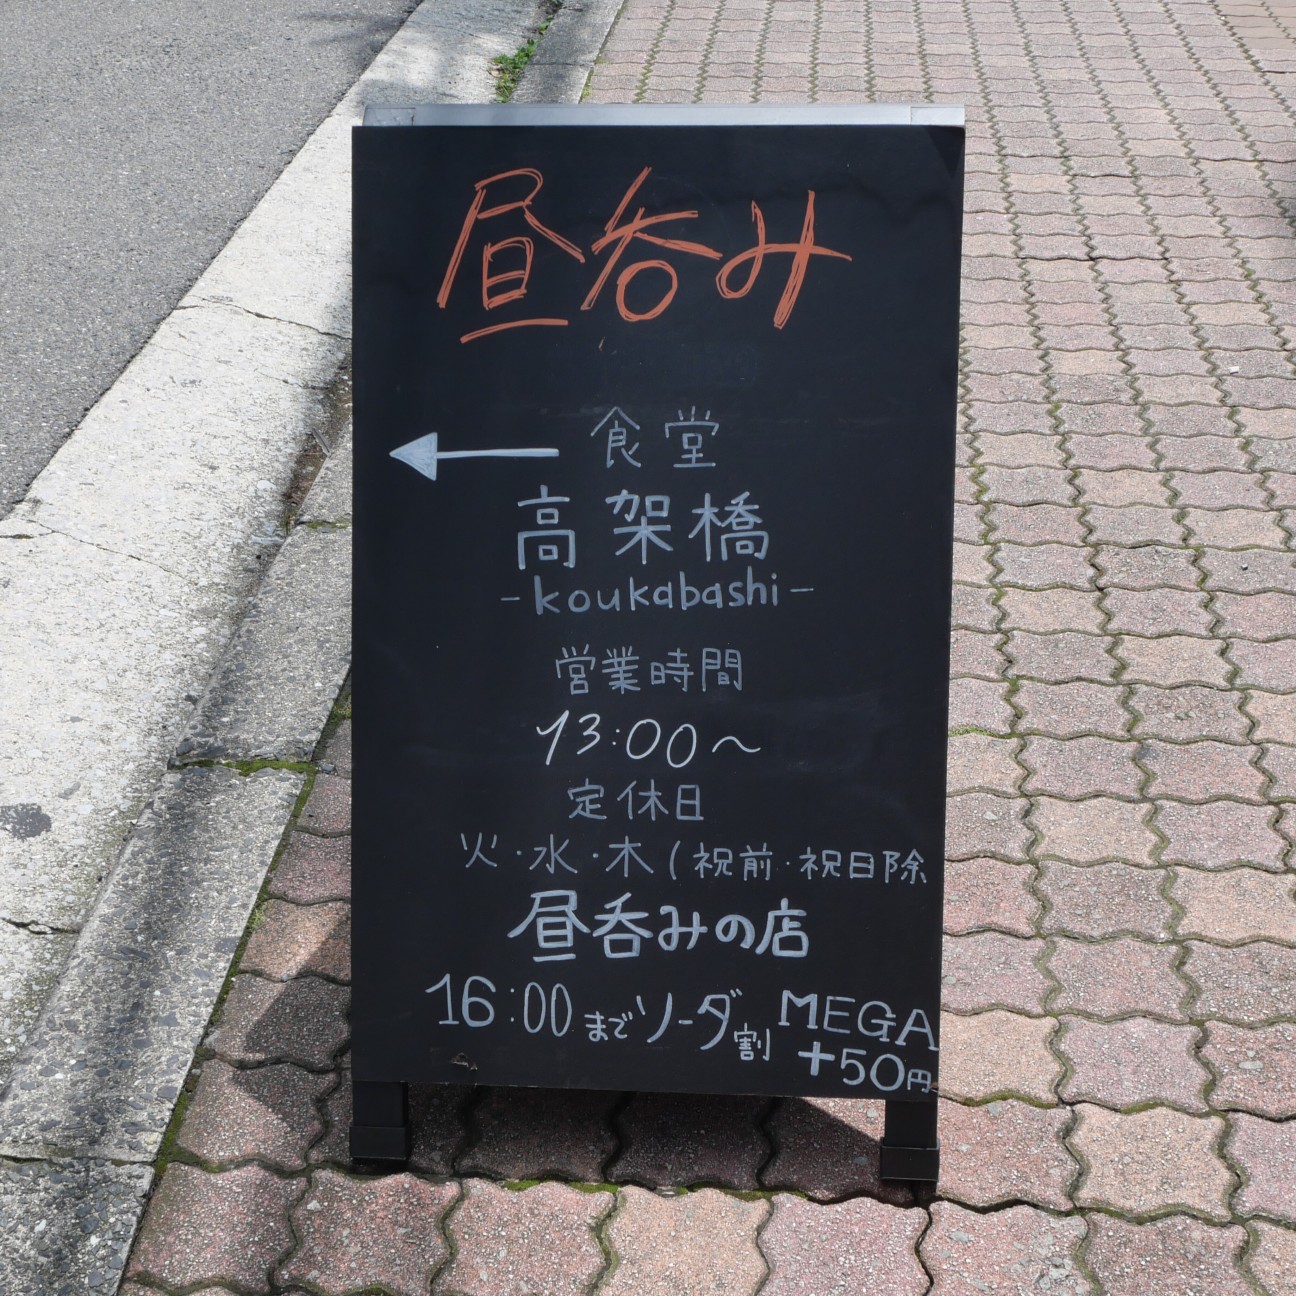 昼呑み
食堂
高架橋
-koukabashi-
営業時間
13:00～
定休日
火・水・木(祝前・祝日除
昼呑みの店
16:00までソーダ割 MEGA
+50円